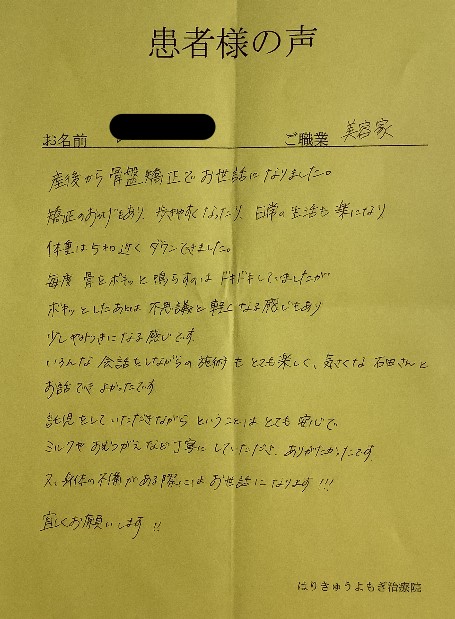 患者様の声
お名前 ご職業 美容家
産後から骨盤矯正でお世話になりました。
矯正のおかげもあり、歩きやすくなったり、日常の生活も楽になり
体重は5キロ近くダウンできました。
毎度 骨をポキッと鳴らすのは ドキドキしていましたが
ポキッとしたあとは 不思議と軽くなる感じもあり
少しやみつきになる感じです。
いろんな会話をしながらの施術も とても楽しく、気さくな 石田さんと
お話できよかったです
託児をしていただきながら ということは とても 安心で。
ミルクや おむつがえなど丁寧に していただき、ありがたかったです。
又、身体の不備がある際には お世話になります!!!
宜しくお願いします!!
はりきゅうよもぎ治療院